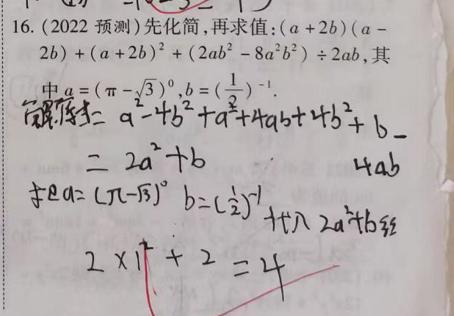 16. (2022 预测)先化简,再求值:(a+2b)(a-
2b)+(a+2b)²+(2ab²-8a²b²)÷2ab,其
中a=(π-√3)⁰,b=(1/2)⁻¹.
解:原式= a²-4b²+a²+4ab+4b²+b-
4ab
= 2a²+b
把a=(π-√3)⁰ b=(1/2)⁻¹
代入 2a²+b
2×1²+2=4